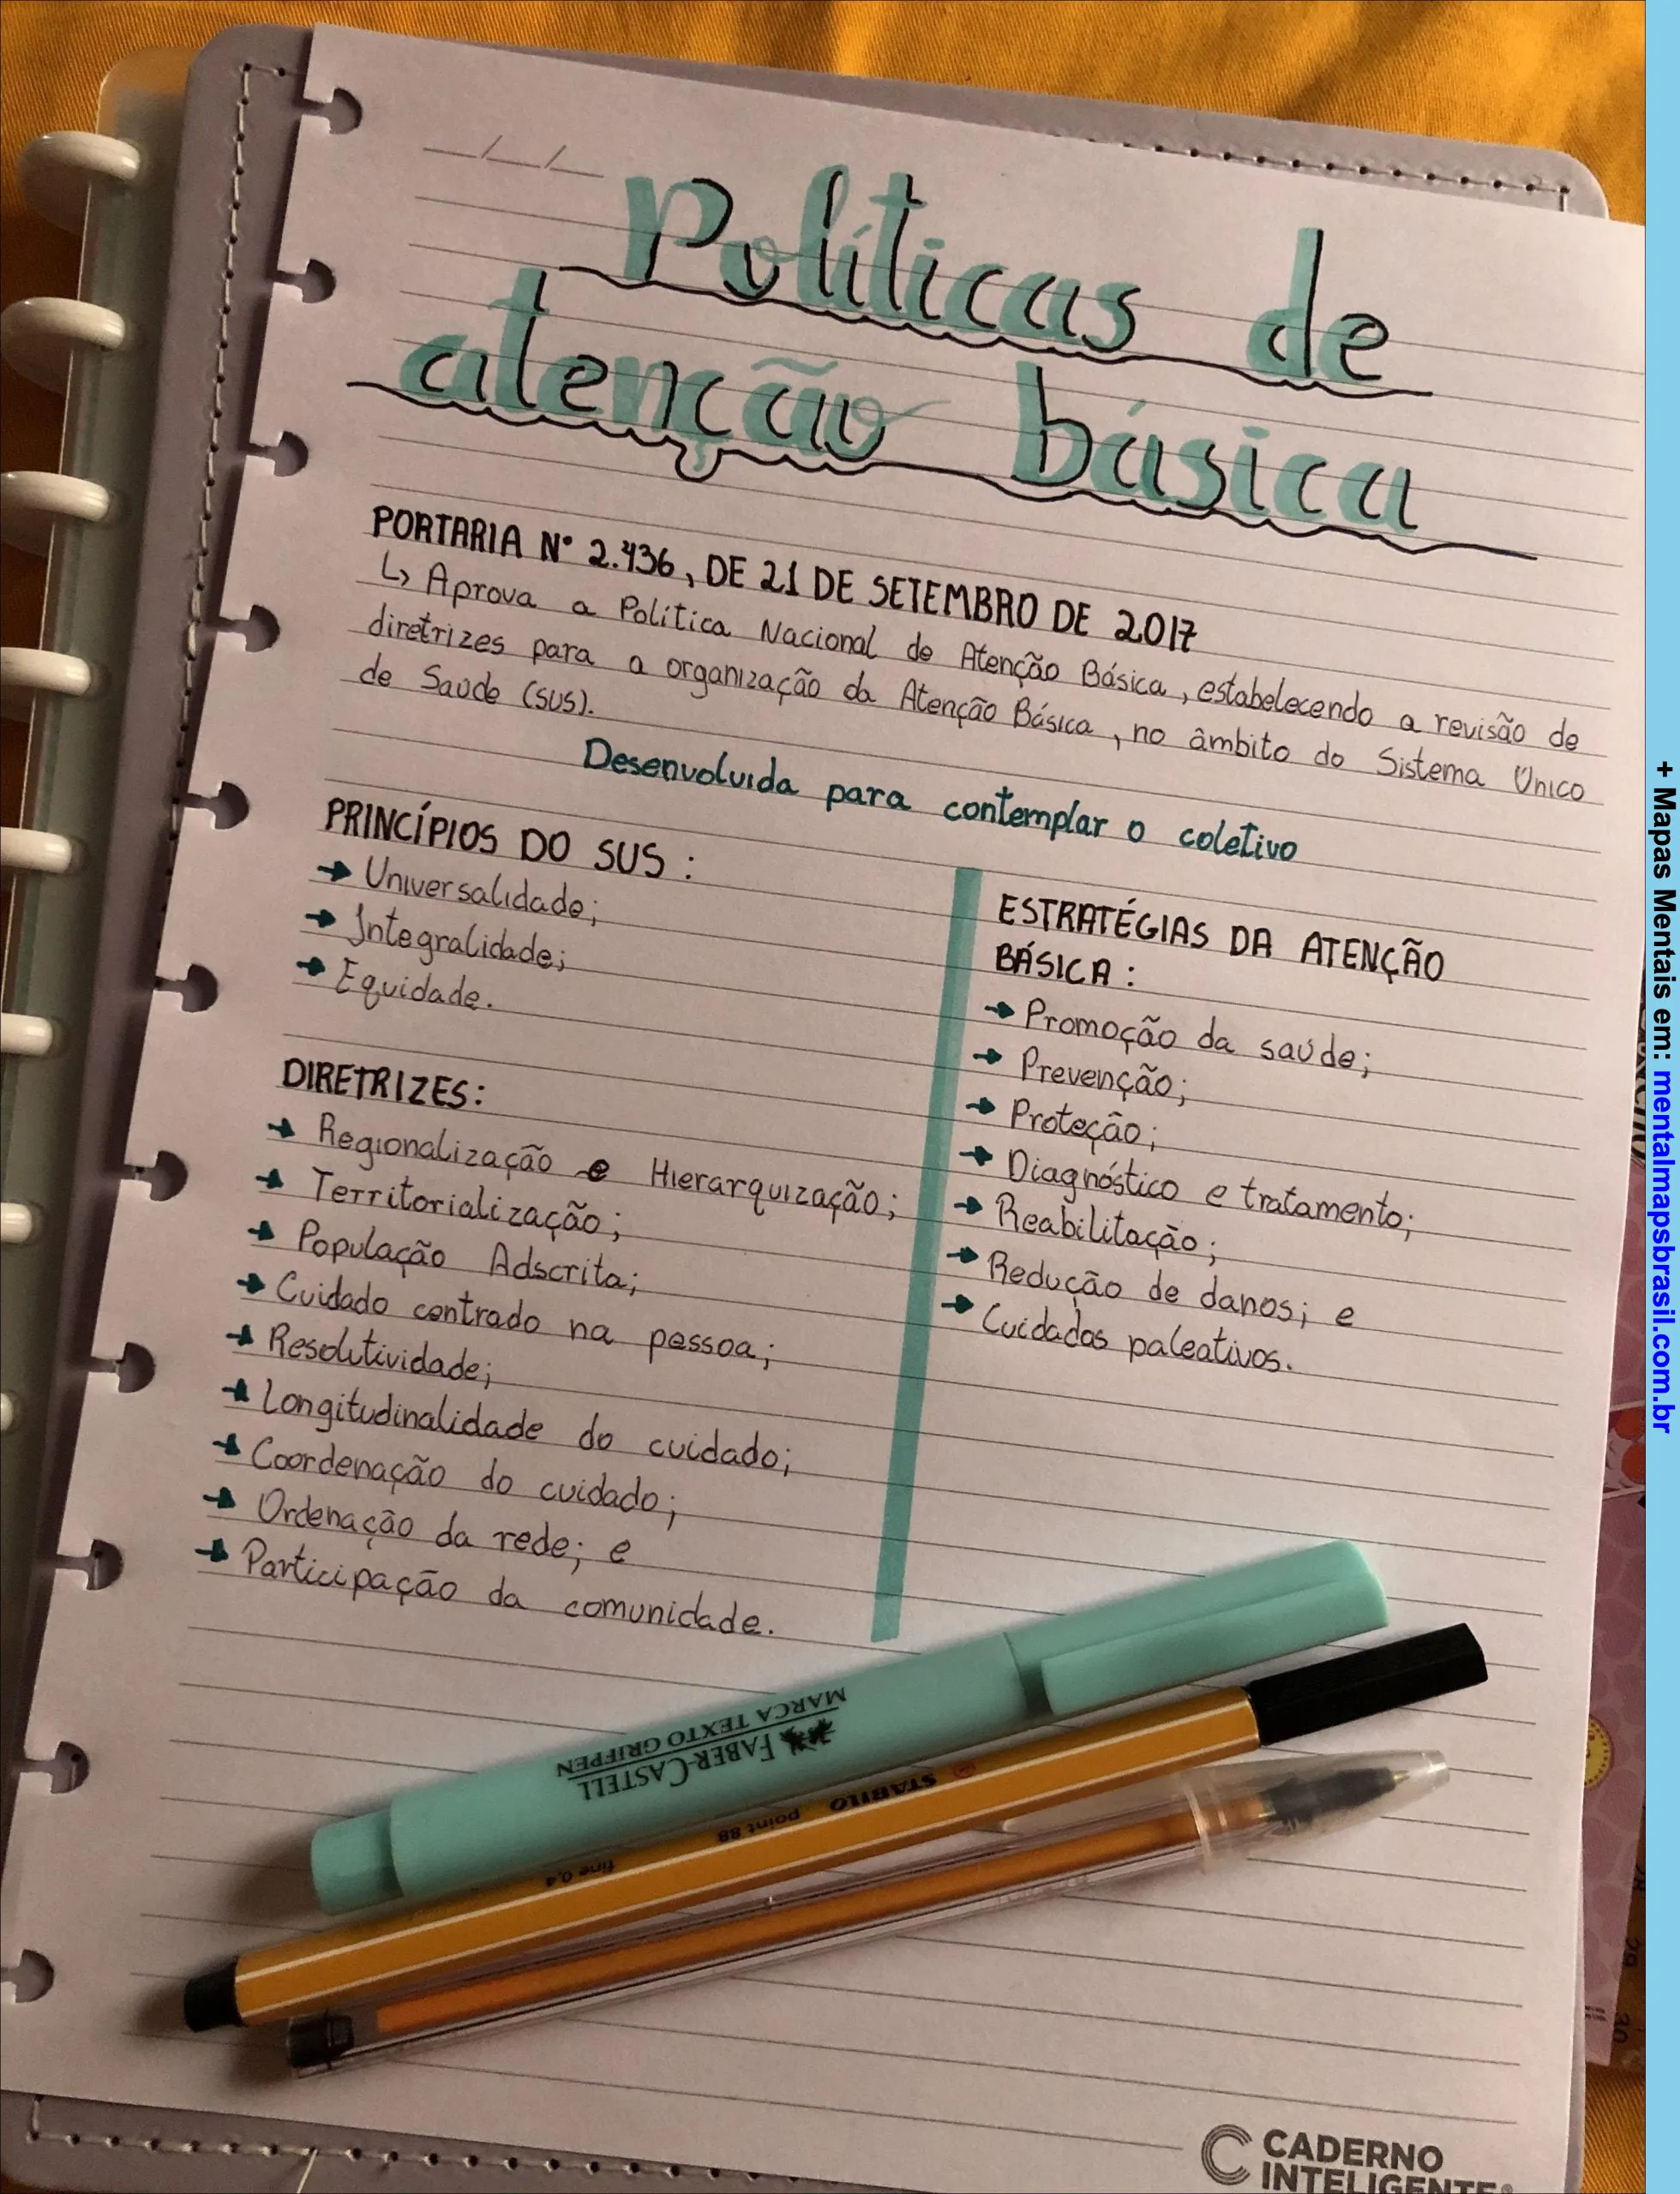 __/__/__
Políticas de
atenção básica
PORTARIA Nº 2.436, DE 21 DE SETEMBRO DE 2017
↳ Aprova a Política Nacional de Atenção Básica, estabelecendo a revisão de
diretrizes para a organização da Atenção Básica, no âmbito do Sistema Único
de Saúde (SUS).
Desenvolvida para contemplar o coletivo
PRINCÍPIOS DO SUS:
→ Universalidade;
→ Integralidade;
→ Equidade.
DIRETRIZES:
→ Regionalização e Hierarquização;
→ Territorialização;
→ População Adscrita;
→ Cuidado centrado na pessoa;
→ Resolutividade;
→ Longitudinalidade do cuidado;
→ Coordenação do cuidado;
→ Ordenação da rede; e
→ Participação da comunidade.
ESTRATÉGIAS DA ATENÇÃO
BÁSICA:
→ Promoção da saúde;
→ Prevenção;
→ Proteção;
→ Diagnóstico e tratamento;
→ Reabilitação;
→ Redução de danos; e
→ Cuidados paleativos.
FABER-CASTELL
MARCA TEXTO GRIFPEN
STABILO point 88 fine 0,4
CADERNO
INTELIGENTE®
+ Mapas Mentais em: mentalmapsbrasil.com.br